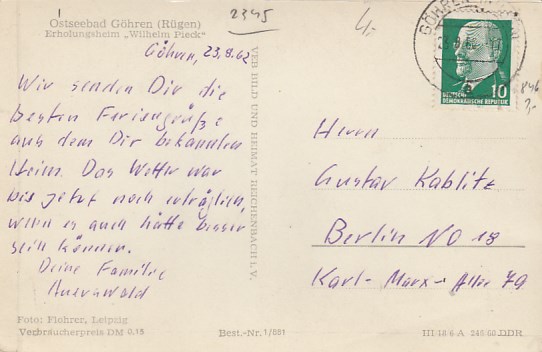 Ostseebad Göhren (Rügen)
Erholungsheim „Wilhelm Pieck"
2345
4,-
Göhren, 23.8.62
Wir senden Dir die
besten Feriengrüße
aus dem Dir bekannten
Heim. Das Wetter war
bis jetzt noch erträglich,
wenn es auch hätte besser
sein können.
Deine Familie
Auerswald
VEB BILD UND HEIMAT REICHENBACH I. V.
GÖHREN
10
DEUTSCHE
DEMOKRATISCHE REPUBLIK
846
Herrn
Gustav Kablitz
Berlin NO 18
Karl-Marx-Allee 79
Foto: Flohrer, Leipzig
Verbraucherpreis DM 0,15
Best.-Nr. 1/881
III 18 6 A 240 60 DDR